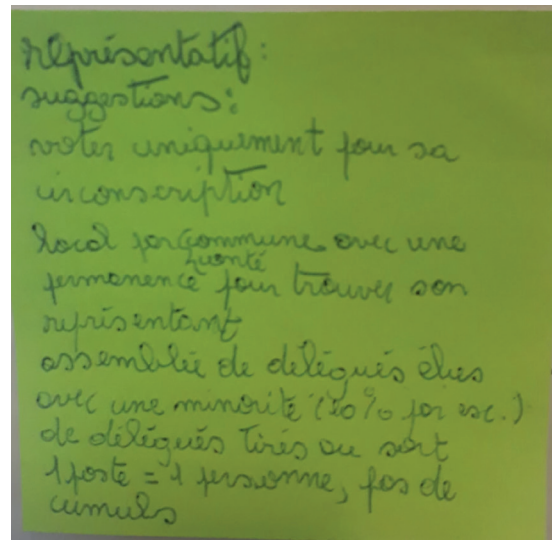 représentatif:
suggestions:
voter uniquement pour sa
circonscription
local par commune avec une
permanence pour trouver son
représentant
assemblée de délégués élues
avec une minorité (20% par ex.)
de délégués tirés au sort
1 poste = 1 personne, pas de
cumuls